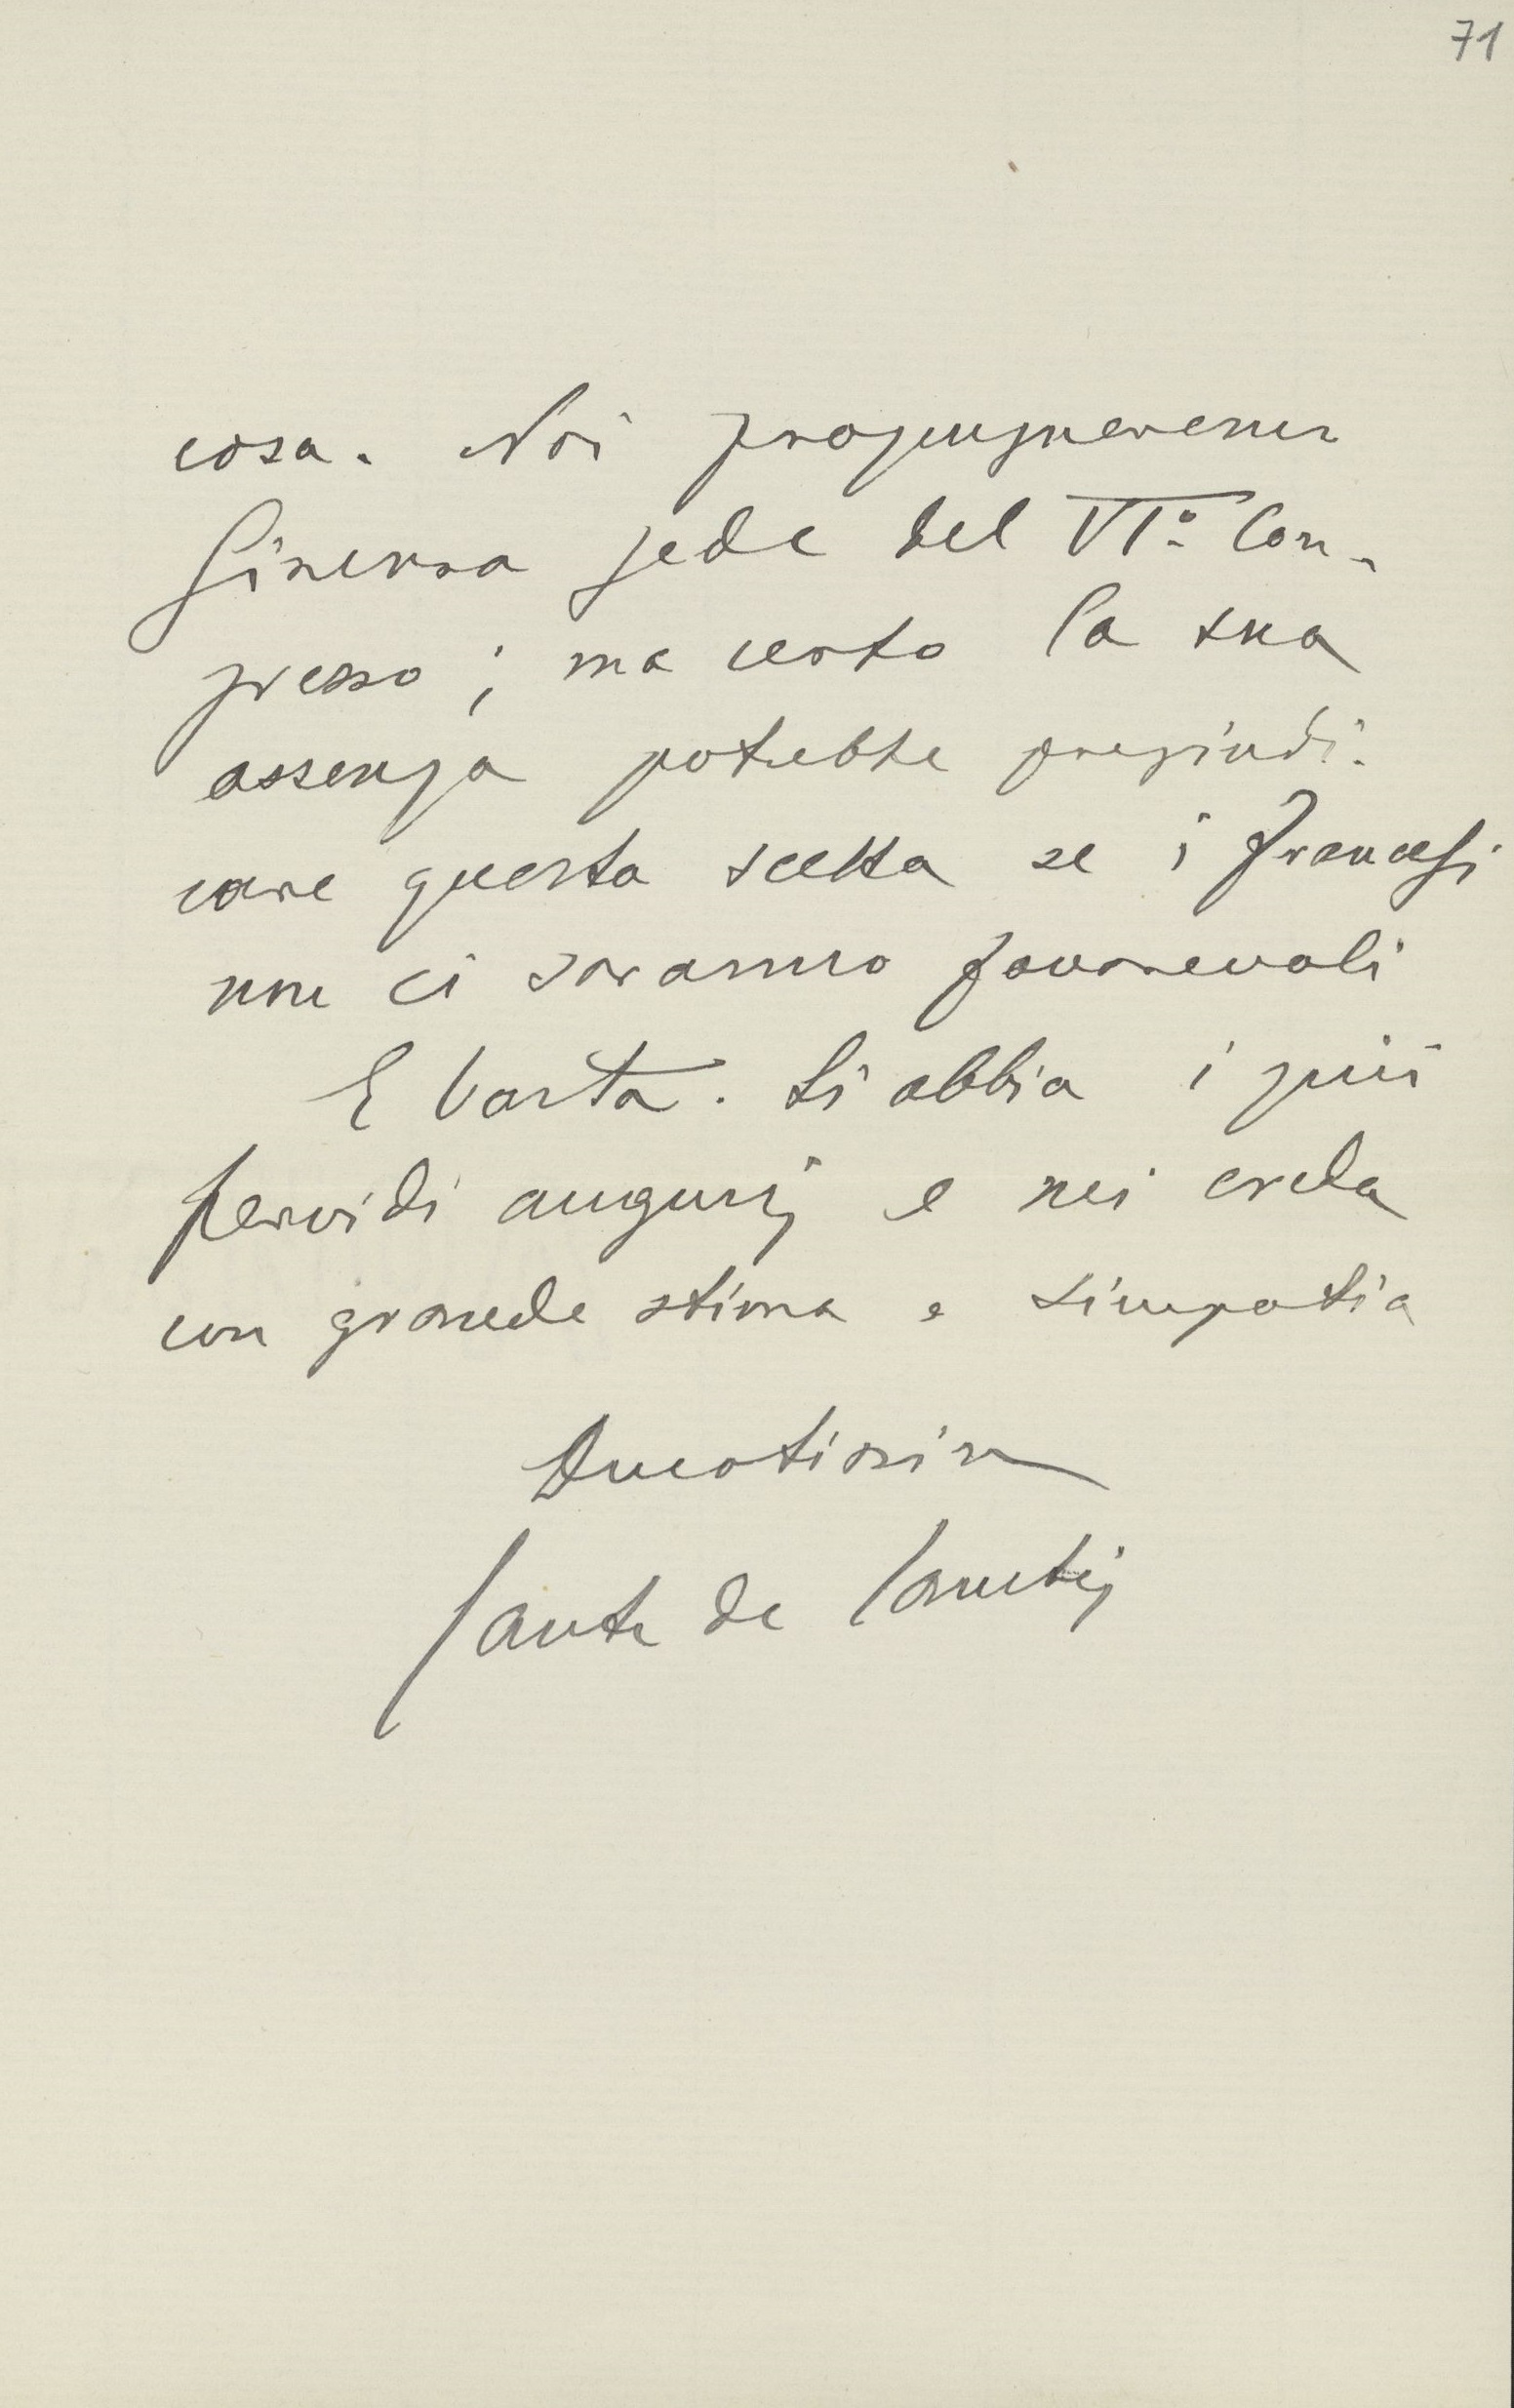 71
cosa. Noi propugneremo
Ginevra sede del VIº Con-
gresso; ma certo la sua
assenza potrebbe pregiudi-
care questa scelta se i francesi
non ci saranno favorevoli
E basta. Si abbia i più
fervidi augurij e mi creda
con grande stima e simpatia
Devotissimo
Sante de Sanctis